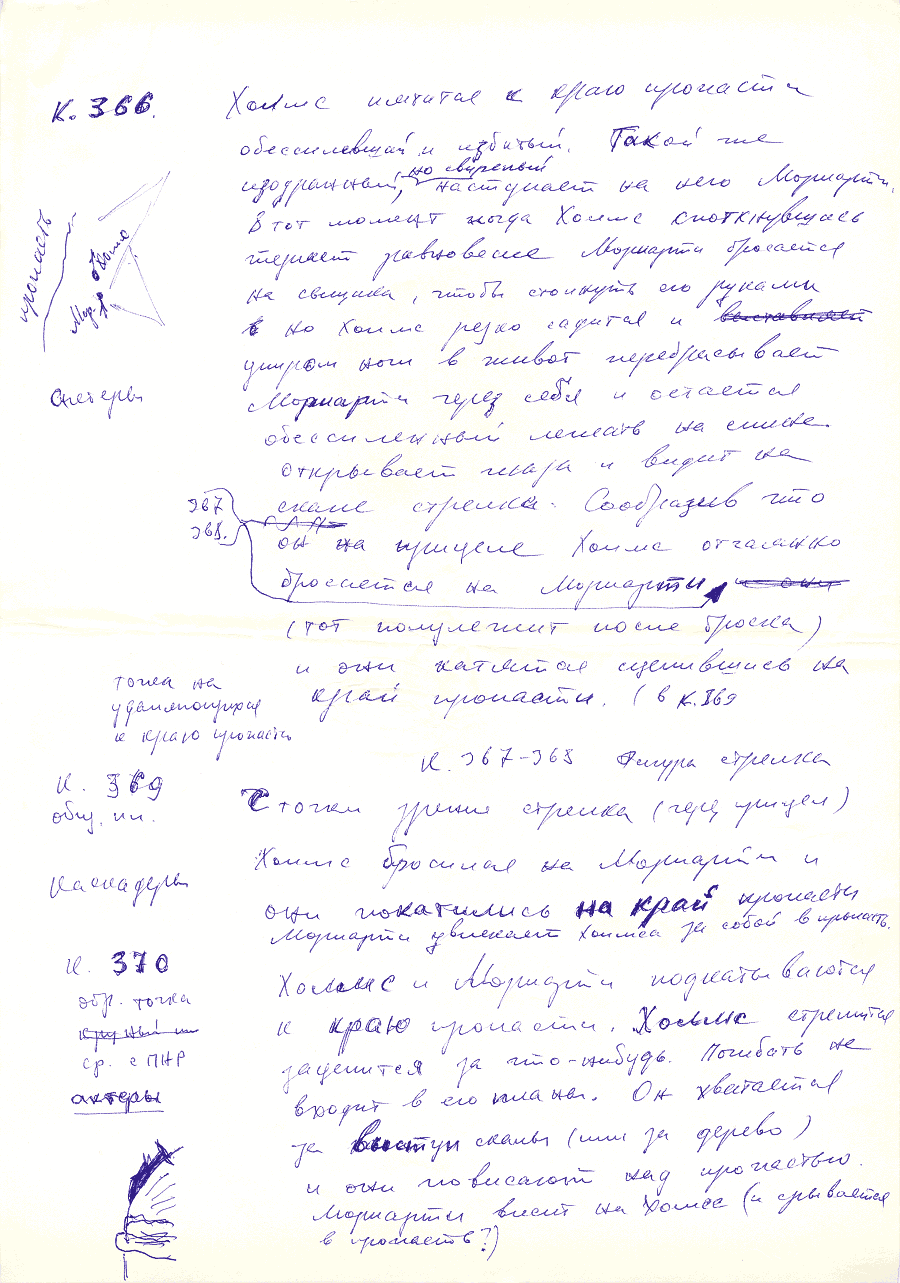 К. 366.
Холмс пятится к краю пропасти
обессилевший и избитый. Такой же
но свирепый
изодранный, наступает на него Мориарти.
В тот момент когда Холмс споткнувшись
теряет равновесие Мориарти бросается
на сыщика, чтобы столкнуть его руками
но Холмс резко садится и выставляет
упором ноги в живот перебрасывает
Мориарти через себя и остается
обессиленный лежать на спине
открывает глаза и видит на
скале стрелка. Сообразив что
он на прицеле Холмс отчаянно
бросается на Мориарти и они
(тот полулежит после броска)
и они катятся сцепившись на
край пропасти. (в к. 369
пропасть
Мор.
Актеры
367
368.
К. 367-368 Фигура стрелка
точка на
удаляющихся
к краю пропасти
К. 369
общ. пл.
С точки зрения стрелка (через прицел)
Холмс бросился на Мориарти и
они покатились на край пропасти
Мориарти увлекает Холмса за собой в пропасть.
Каскадеры
К. 370
обр. точка
крупный пл
ср. с ПНР
актеры
Холмс и Мориарти подкатываются
к краю пропасти. Холмс стремится
зацепится за что-нибудь. Погибать не
входит в его планы. Он хватается
за выступ скалы (или за дерево)
и они повисают над пропастью.
Мориарти висит на Холмсе (и срывается
в пропасть?)